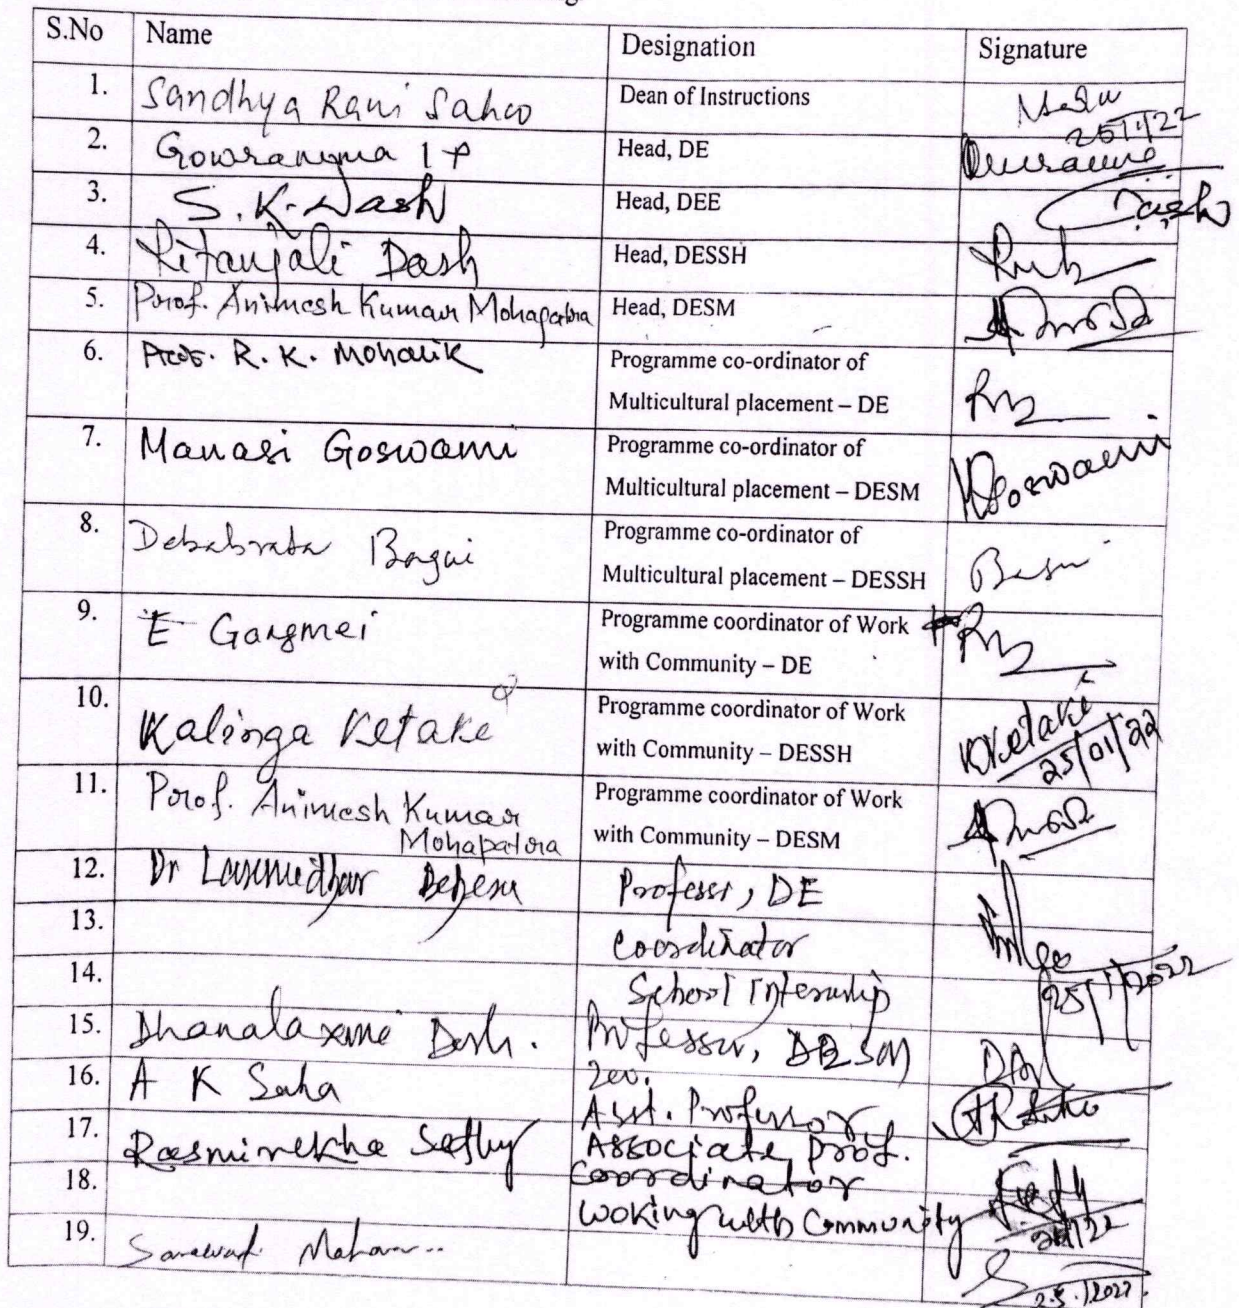 S.No Name Designation Signature
1. Sandhya Rani Sahoo Dean of Instructions
25/1/22
2. Gowramma I P Head, DE
3. S. K. Dash Head, DEE Dash
4. Ritanjali Dash Head, DESSH
5. Prof. Animesh Kumar Mohapatra Head, DESM
6. Prof. R. K. Mohalik Programme co-ordinator of
Multicultural placement – DE
7. Manasi Goswami Programme co-ordinator of
Multicultural placement – DESM MGoswami
8. Debabrata Bagui Programme co-ordinator of
Multicultural placement – DESSH
9. E Gangmei Programme coordinator of Work
with Community – DE
10. Kalinga Ketaki Programme coordinator of Work
with Community – DESSH KKetaki
25/01/22
11. Prof. Animesh Kumar Programme coordinator of Work
Mohapatra with Community – DESM
12. Dr Laxmidhar Behera Professor, DE
13. Coordinator
14. School Internship 25/1/2022
15. Dhanalaxmi Dash. Professor, DESM
16. A K Saha Asst. Professor
17. Rasmirekha Sethy Associate Prof.
18. Coordinator
Woking with Community
19.